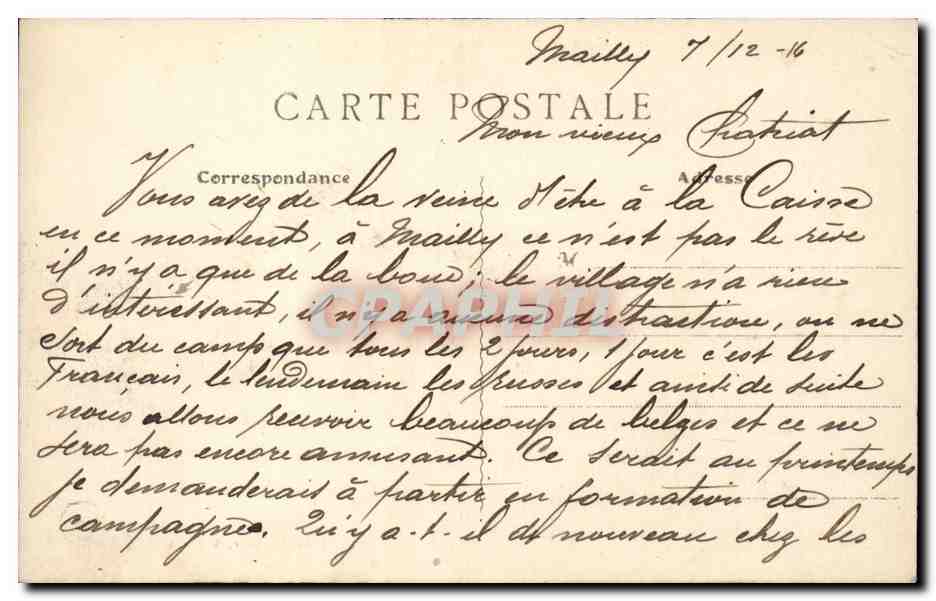 Mailly 7/12-16
CARTE POSTALE
Mon vieux Chatriat
Correspondance
Adresse
Vous avez de la veine d'être à la Caisse
en ce moment, à Mailly ce n'est pas le rêve
il n'y a que de la boue; le village n'a rien
CPAPHIL
d'intéressant, il n'y a aucune distraction, on ne
sort du camp que tous les 2 jours, 1 jour c'est les
Français, le lendemain les russes et ainsi de suite
nous allons recevoir beaucoup de belges et ce ne
sera pas encore amusant. Ce serait au printemps
je demanderais à partir en formation de
campagne. Qu'y a-t-il de nouveau chez les